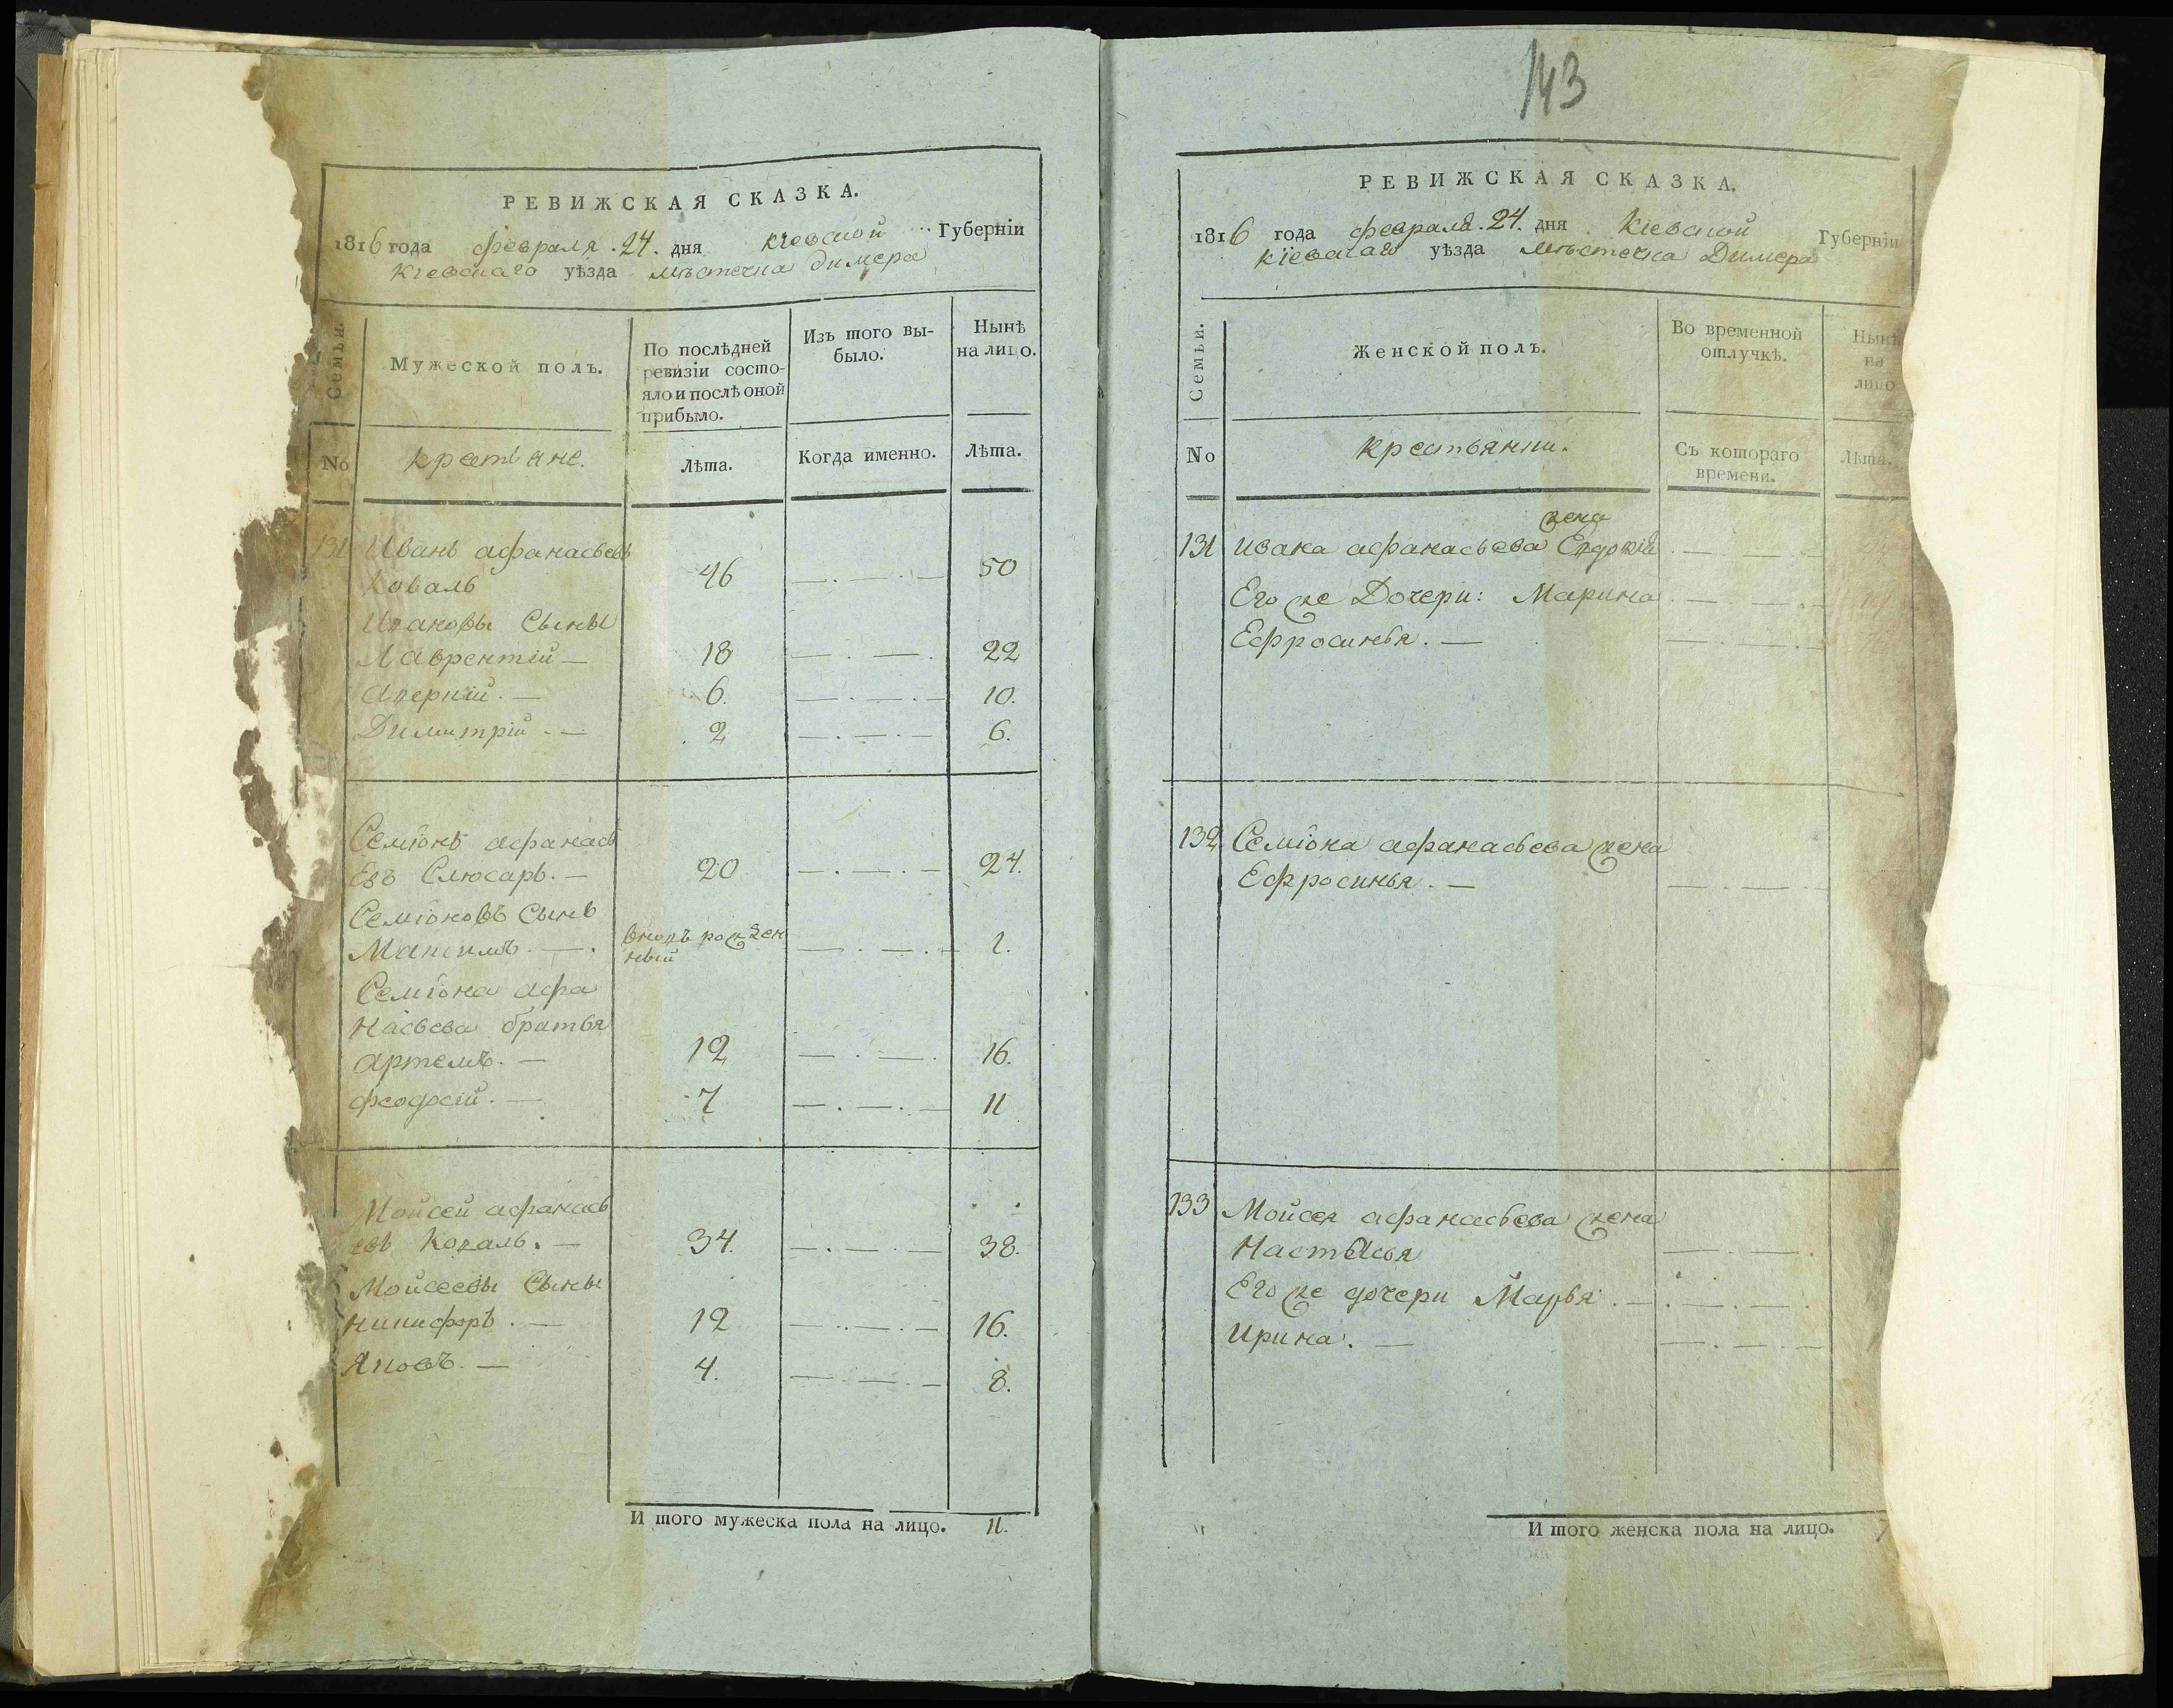 РЕВИЖСКАЯ СКАЗКА.
1816 года февраля 24. дня кіевской Губерніи
кіевскаго уѣзда мѣстечка димера
Семьи.
Мужеской полъ.
По послѣдней ревизіи состояло и послѣ оной прибыло.
Изъ того выбыло.
Нынѣ на лицо.
No
крестьяне.
Лѣта.
Когда именно.
Лѣта.
131 Иванъ афанасьевъ
Коваль 46 50
Ивановы Сыны
Лаврентій 18 22
6. 10.
Димитрій 2 6.
Семіонъ афанась
Евъ Слюсарь. 20 24.
Семіоновъ Сынъ
Максимъ вновь рожденный 1.
Семіона афа
насьева братья
артемъ. 12 16.
феодосій. 7 11
Мойсей афанась
евъ Коваль. 34. 38.
Мойсеевы Сыны
никифоръ. 12 16.
Яковъ. 4. 8.
И того мужеска пола на лицо. 11.
143
РЕВИЖСКАЯ СКАЗКА.
1816 года февраля 24. дня Кіевской Губерніи
кіевскаго уѣзда мѣстечка Димера
Семьи.
Женской полъ.
Во временной отлучкѣ.
Нынѣ на лицо
No
крестьянки.
Съ котораго времени.
Лѣта.
жена
131 ивана афанасьева Евдокія
Его же Дочери: Марина
Ефросинья.
132 Семіона афанасьева жена
Ефросинья.
133 Мойсея афанасьева жена
Настасья
Его же дочери Марья
Ирина.
И того женска пола на лицо. 7